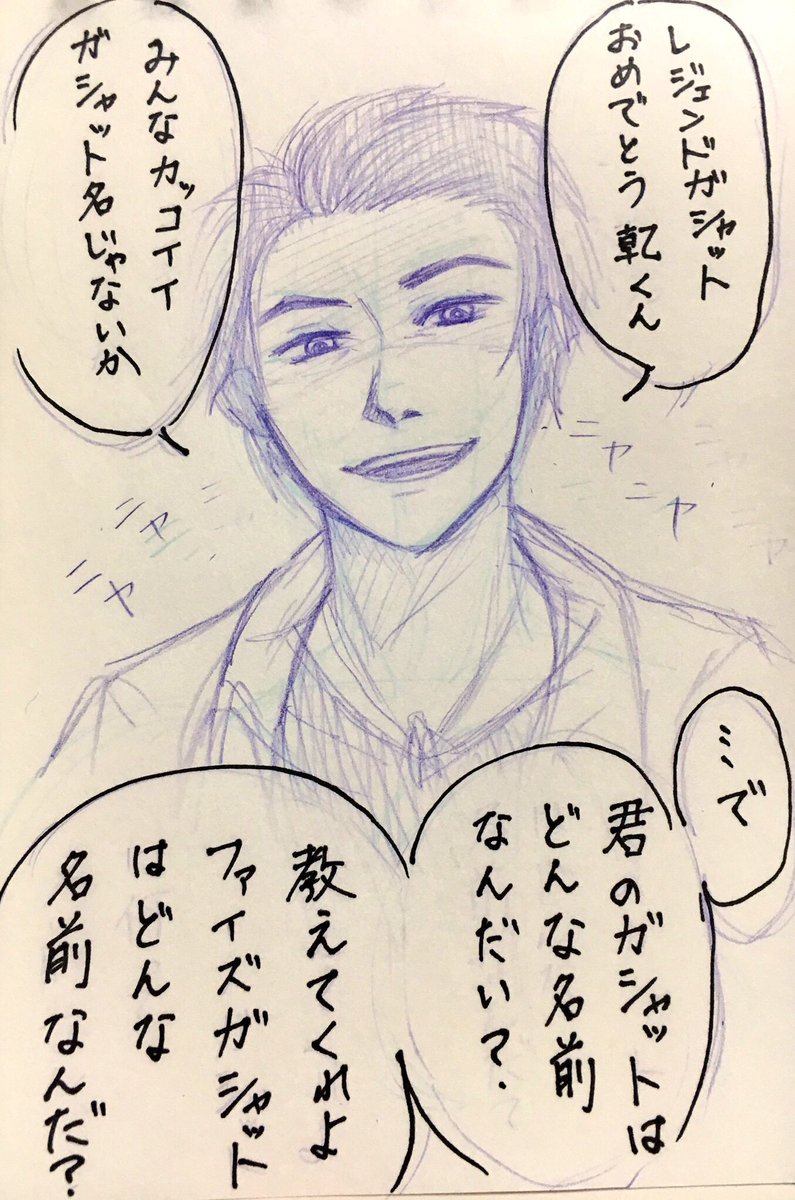 レジェンドガシャット
おめでとう 乾くん
みんなカッコイイ
ガシャット名じゃないか
ニヤ
ニヤ
ニヤ
ニヤ
ニヤ
…で
君のガシャットは
どんな名前
なんだい?
教えてくれよ
ファイズガシャット
はどんな
名前なんだ?